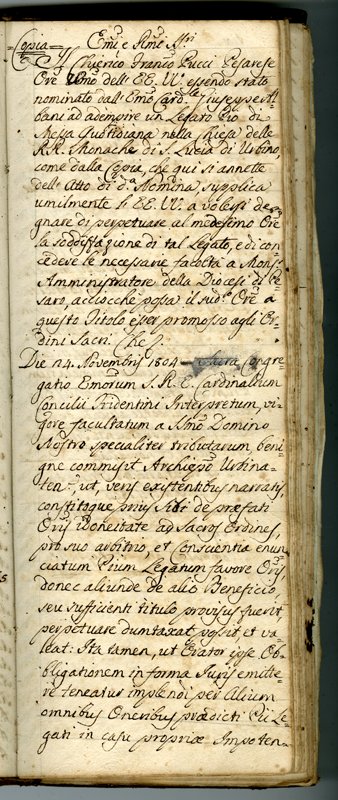 =Copia= Emi, e Rmi Sri
Il Chierico Franco Pucci Pesarese
Ore Umo dell' EE. VV. essendo stato
nominato dall' Emo Card.le Giuseppe Al=
bani ad adempire un Legato Pio di
Messa Quotidiana nella Chiesa delle
R.R. Monache di S. Lucia di Urbino,
come dalla Copia, che qui si annette
dell' Atto di d.a Nomina, supplica
umilmente l' EE. VV. a volersi de=
gnare di perpetuare al medesimo Ore
la soddisfazione di tal Legato, e di con=
cedere le necessarie facoltà a Monsr
Amministratore della Diocesi di Pe=
saro, acciocchè possa il sud.o Ore a
questo Titolo esser promosso agli Or=
dini Sacri. Che
Die 24. Novembris 1804 Sacra Congre=
gatio Emorum S. R. E. Cardinalium
Concilii Tridentini Interpretum, vi=
gore facultatum a SSmo Domino
Nostro specialiter tributarum, beni=
gne commisit Archiepo Urbina=
ten, ut, veris existentibus narratis,
constitoque prius sibi de præfati
Oris idoneitate ad Sacros Ordines,
pro suo arbitrio, et conscientia enun=
ciatum Pium Legatum favore Oris,
donec aliunde de alio Beneficio,
seu sufficienti titulo provisus fuerit
perpetuare dumtaxat possit, et va=
leat. Ita tamen, ut Orator ipse Ob=
bligationem in forma Juris emitte=
re teneatur implendi per Alium
omnibus Oneribus prædicti Pii Le=
gati in casu propriæ Impoten=